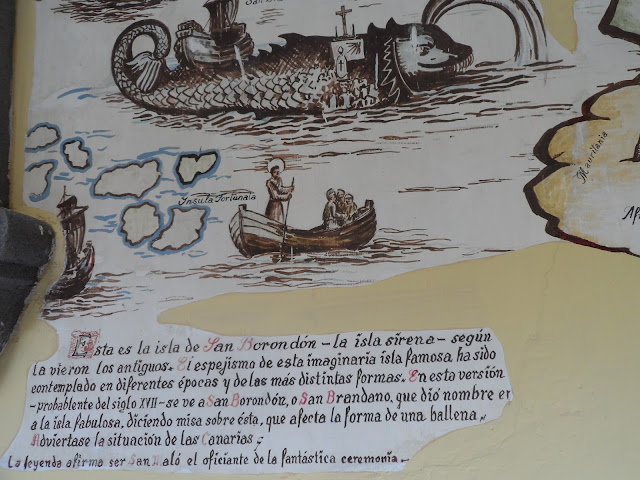 San
Mauritania
Insula Fortunata
Esta es la isla de San Borondón -la isla sirena- según
la vieron los antiguos. El espejismo de esta imaginaria isla famosa, ha sido
contemplado en diferentes épocas y de las más distintas formas. En esta versión
-probablente del siglo XVII- se ve a San Borondón, o San Brandano, que dió nombre
a la isla fabulosa, diciendo misa sobre ésta, que afecta la forma de una ballena.
Adviertase la situación de las Canarias.
La leyenda afirma ser San Maló el oficiante de la fantástica ceremonia.-